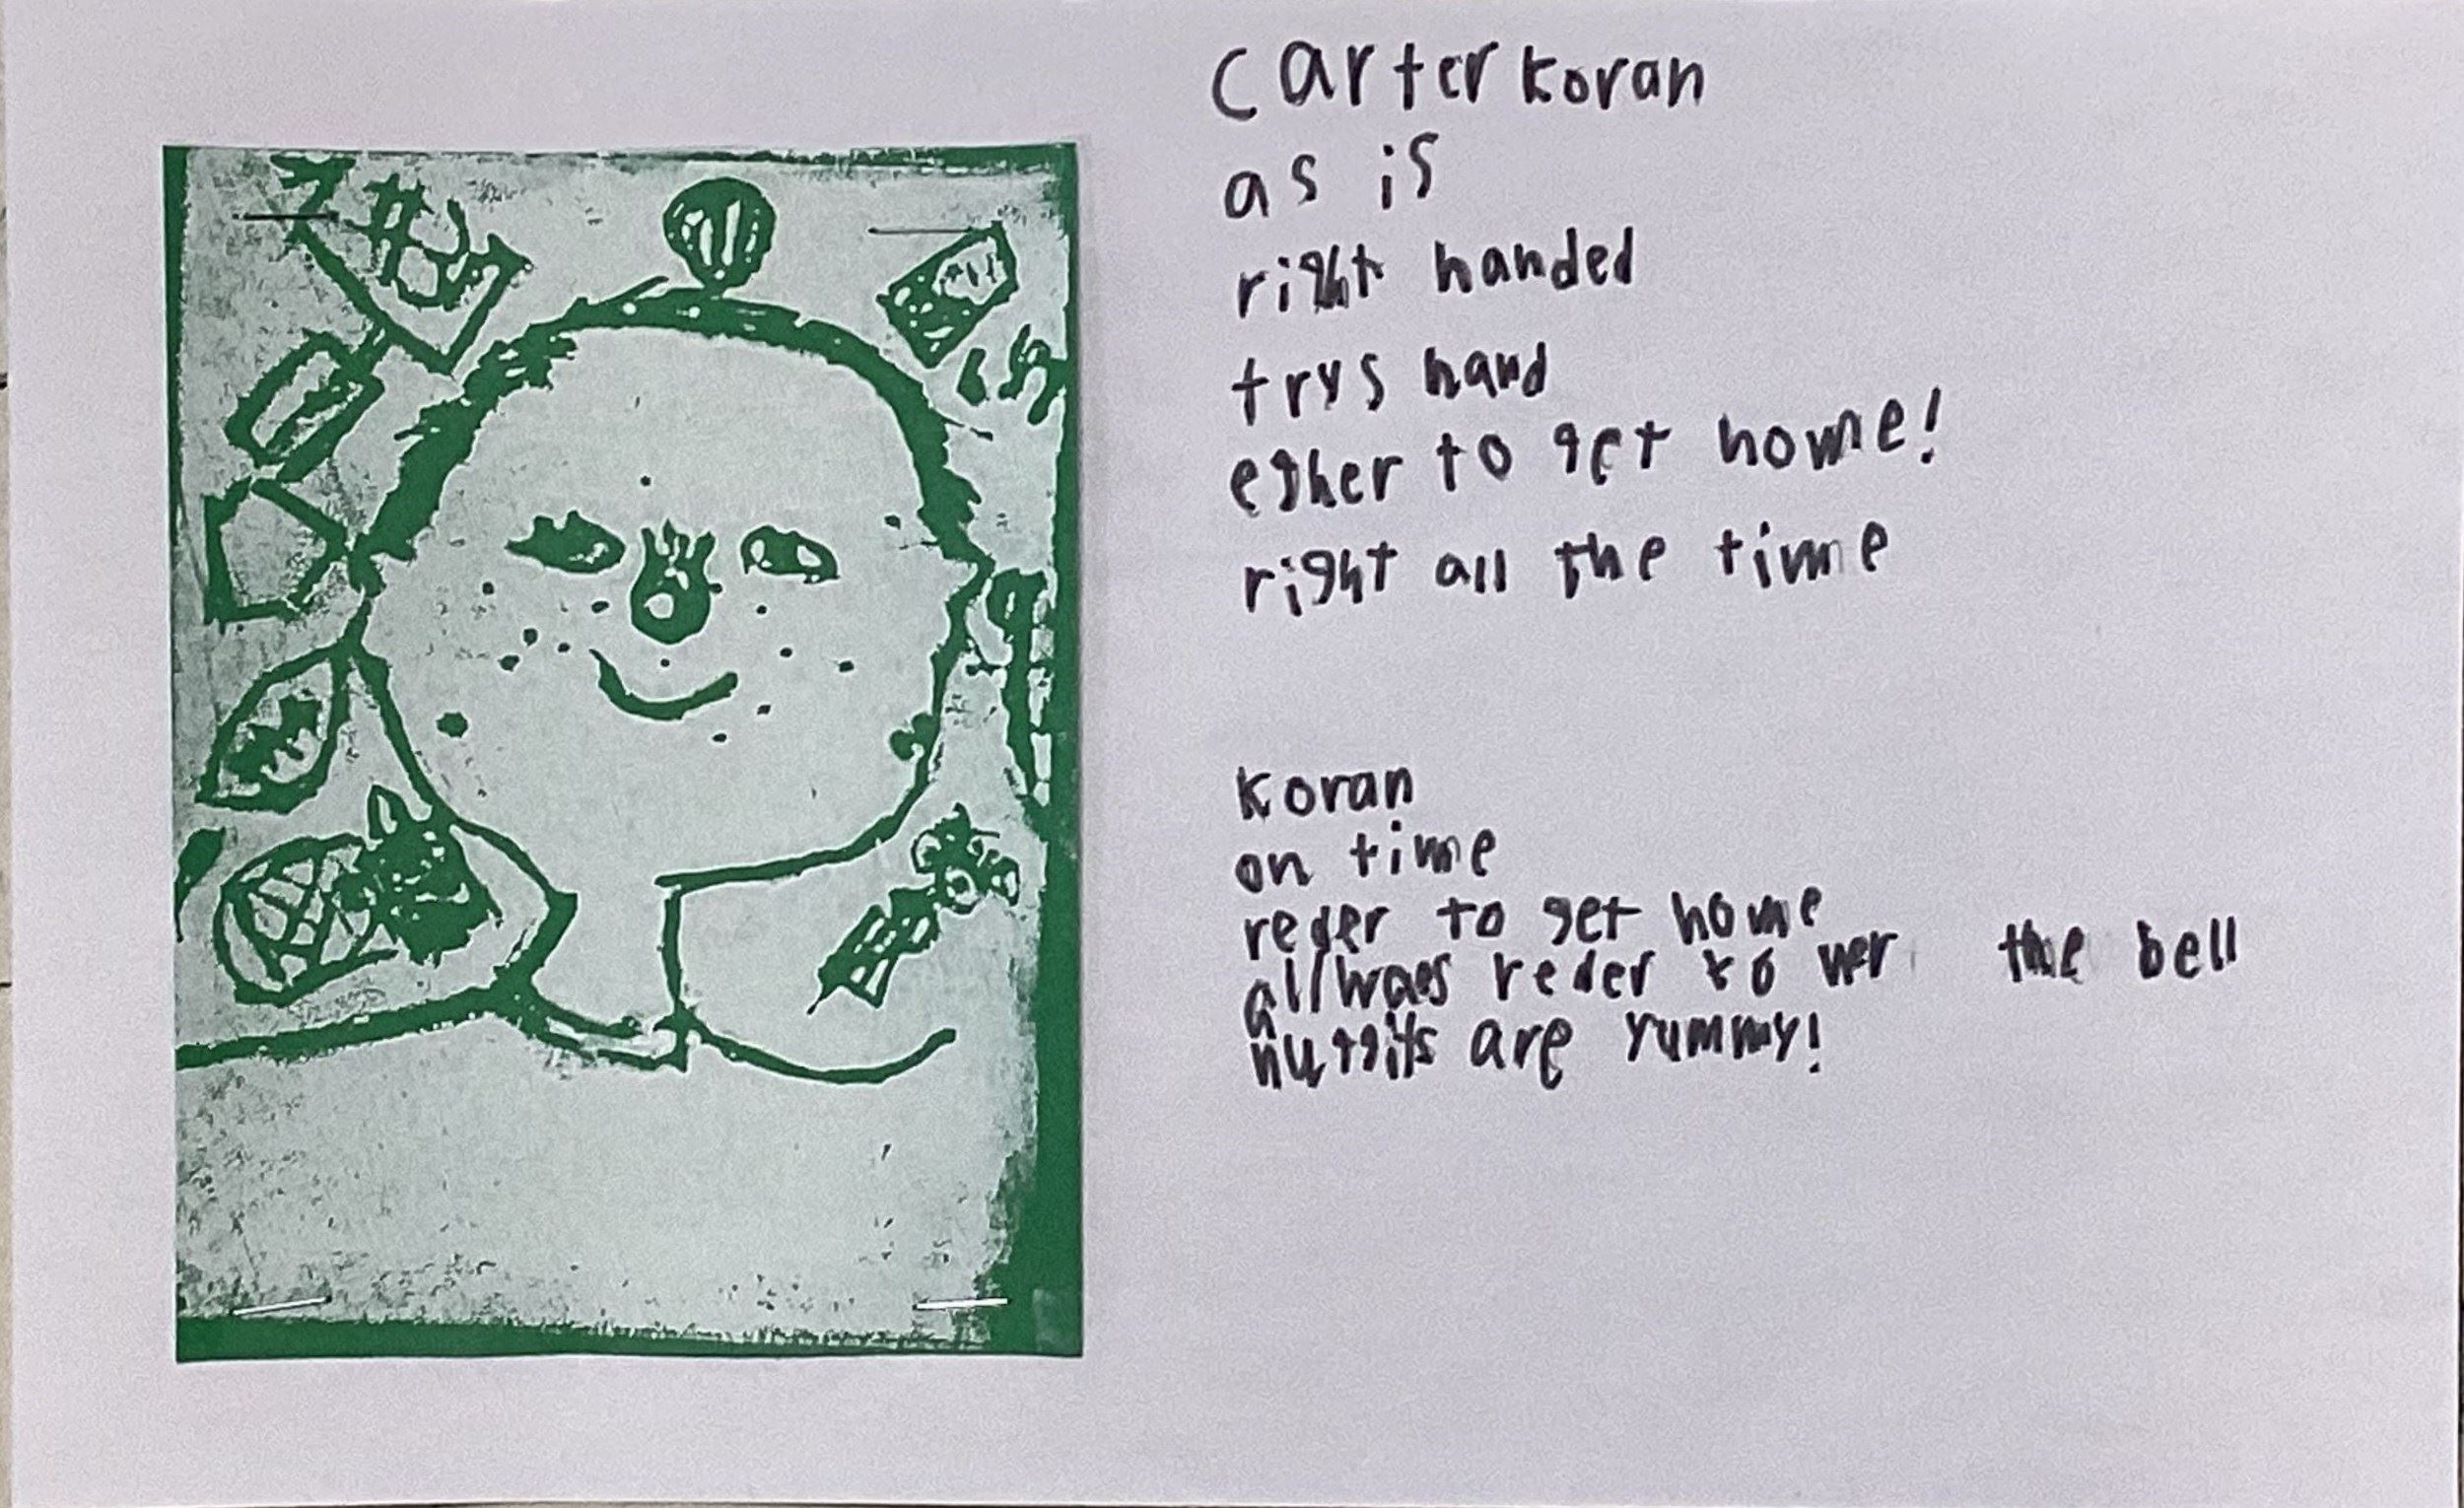 Carter Koran
as is
right handed
trys hard
ether to get home!
right all the time
Koran
on time
reder to get home
allwaes reder to the bell
nuggits are yummy!